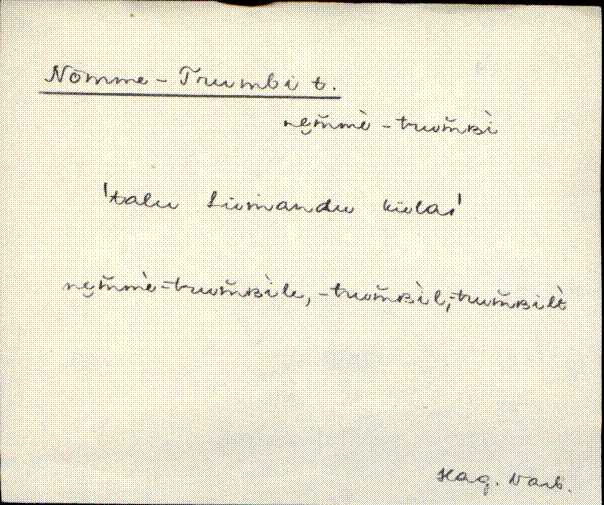 Nõmme - Trumbi t.
nę̮m̆mè - trum̆ʙì
'talu Liimandu külas'
nę̮m̆mè-trum̆ʙìle, -trum̆ʙìl, -trum̆ʙilt
Hag. Varb.